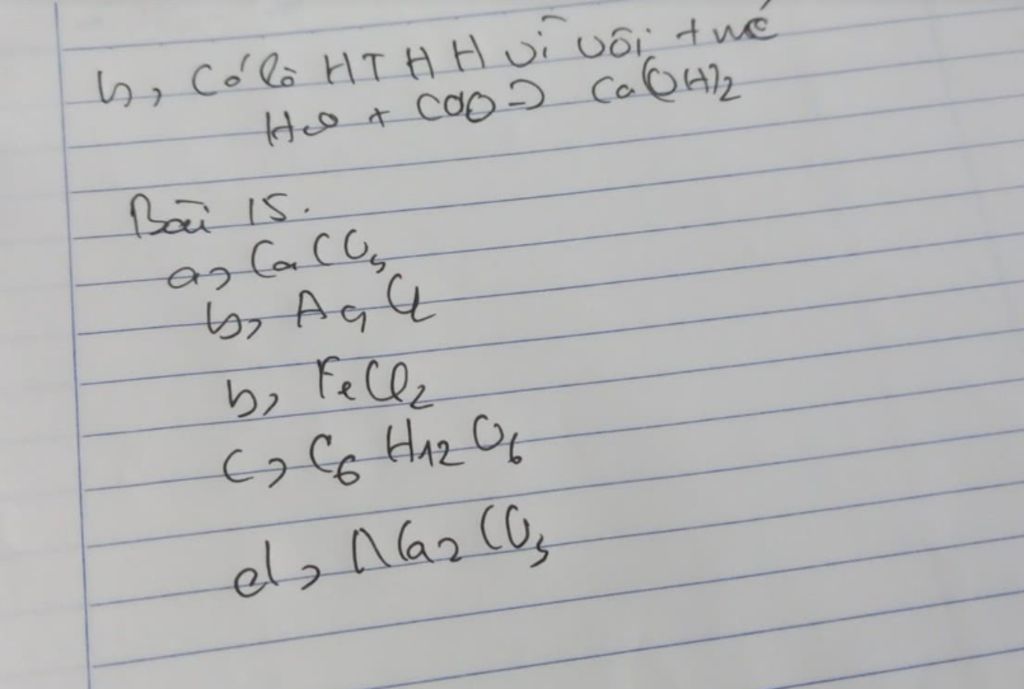 b, Có là HTHH vì vôi + nước
H2O + CaO => Ca(OH)2
Bài 15.
a, CaCO3
b, AgCl
b, FeCl2
c, C6H12O6
d, Na2CO3